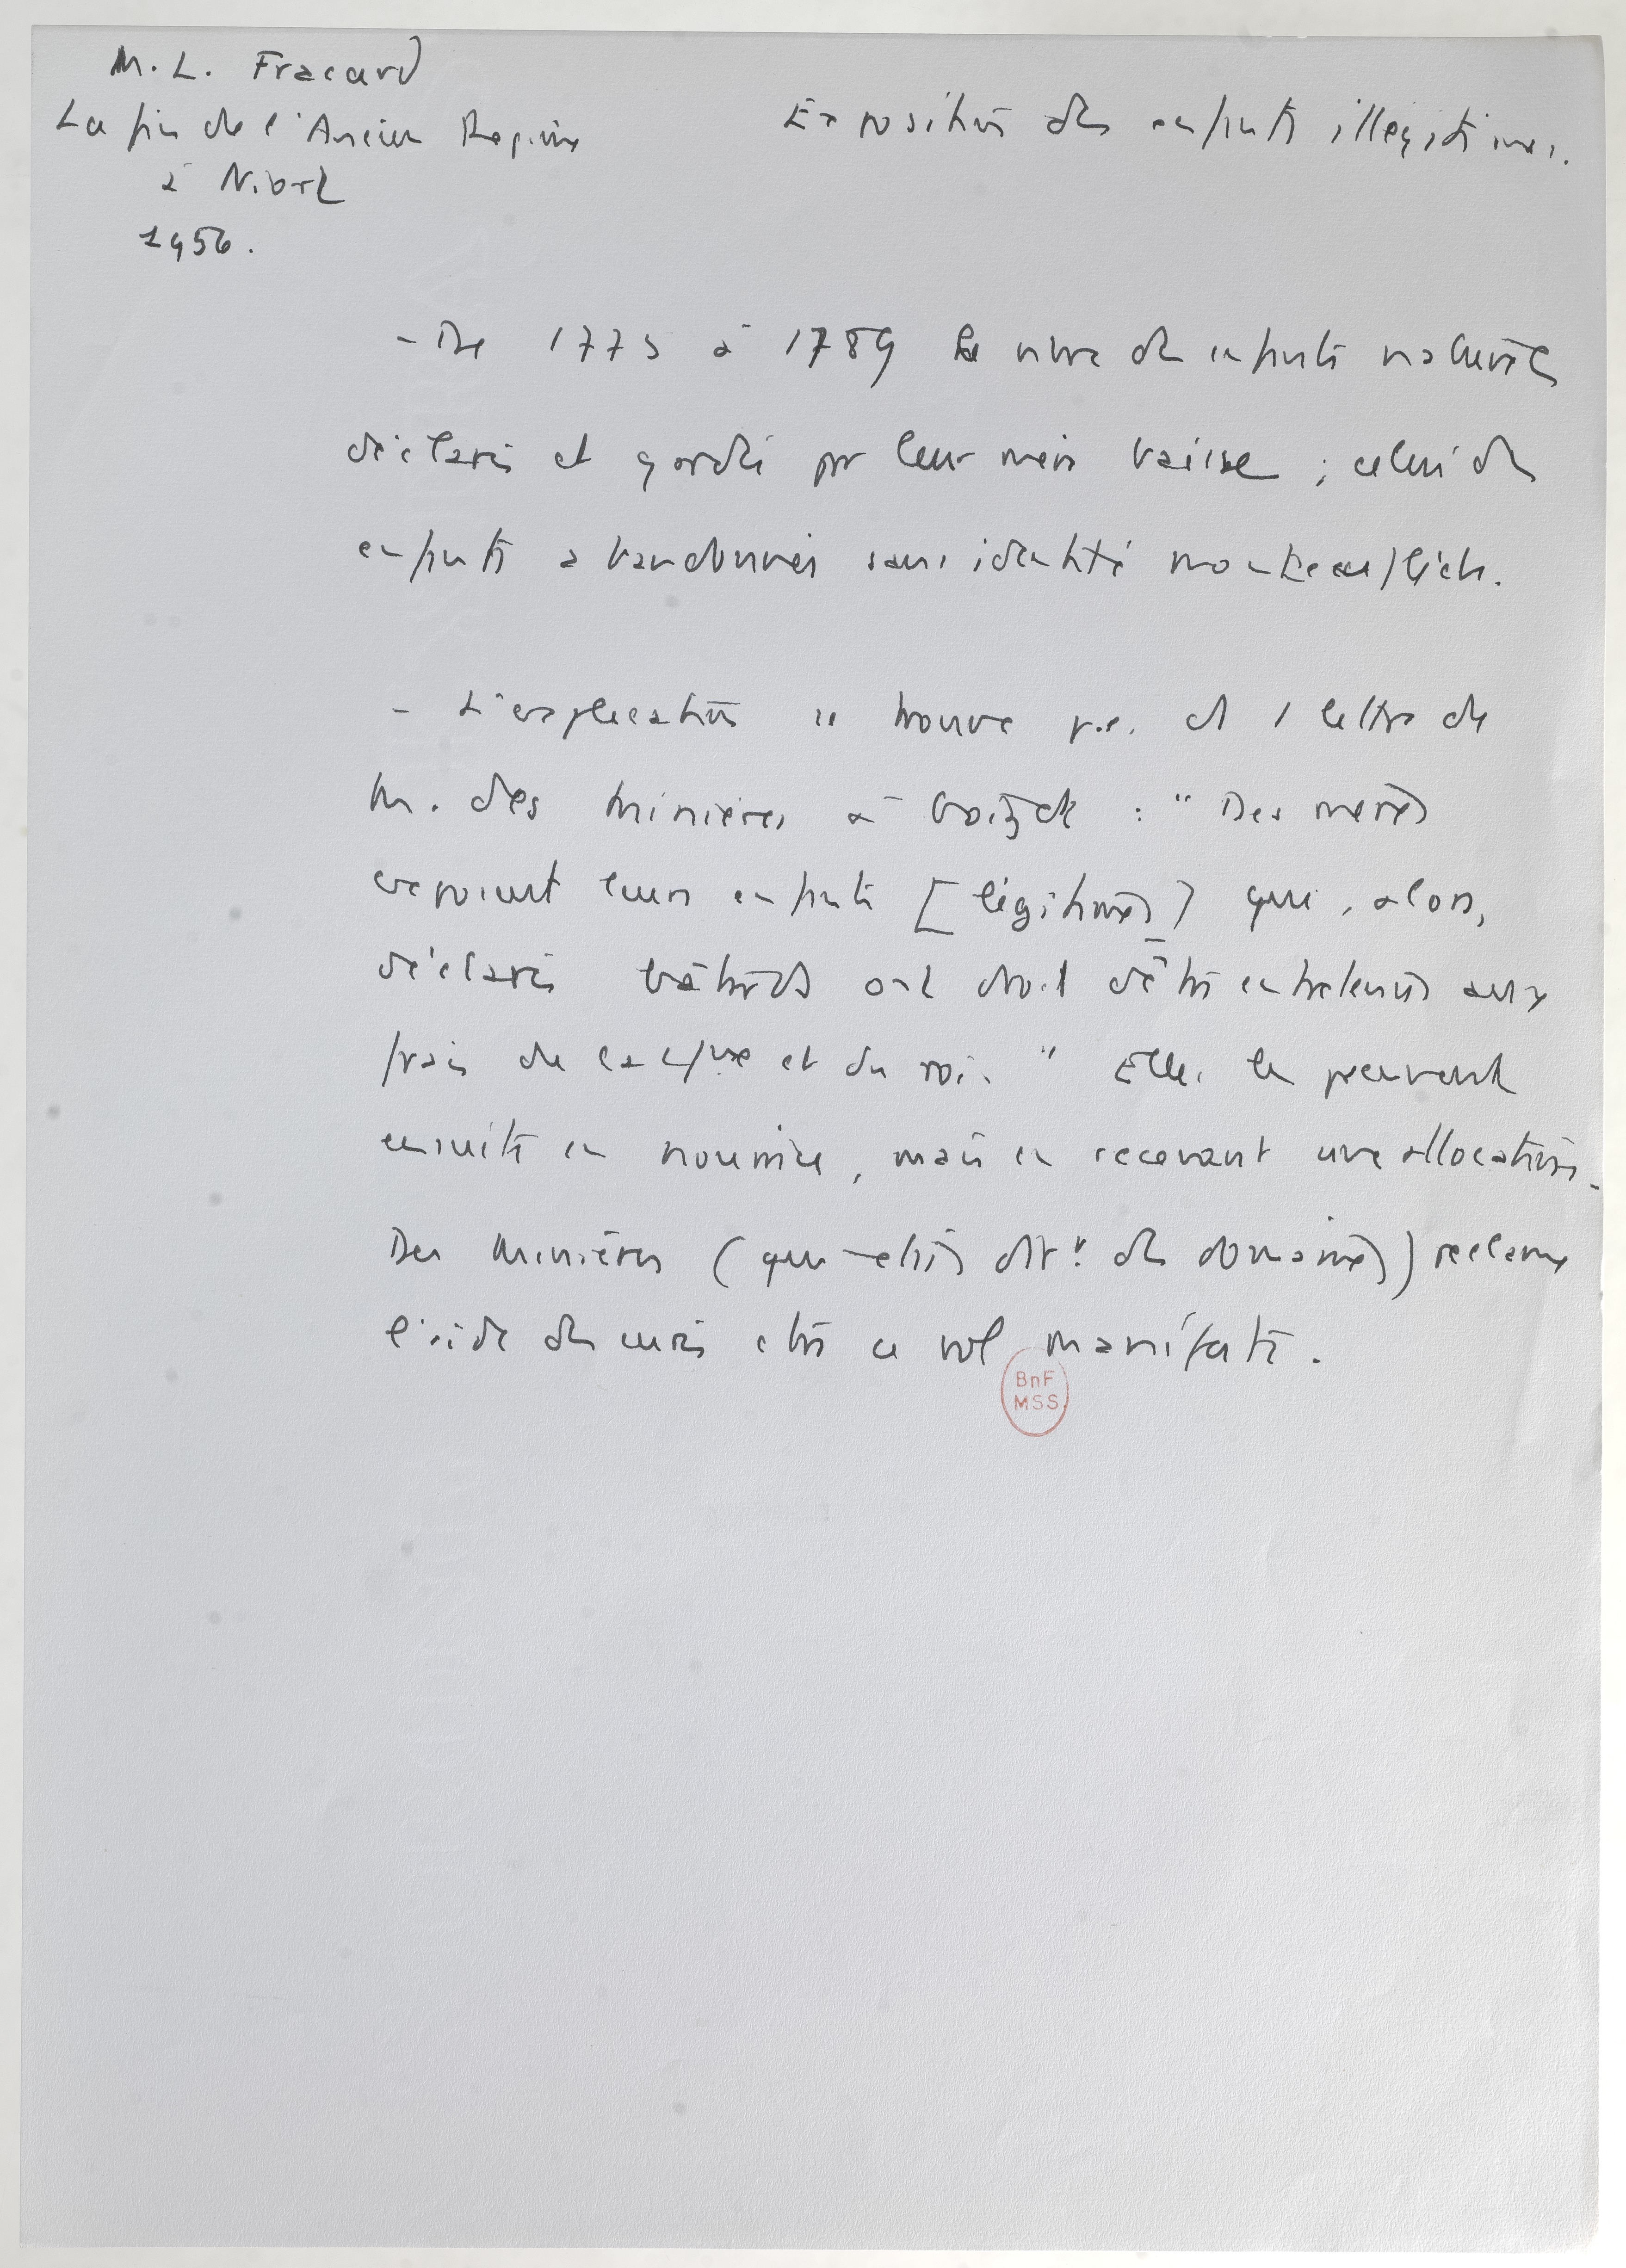 M. L. Fracard
La fin de l'Ancien Régime
à Niort
1956.
Exposition des enfants illégitimes.
- De 1775 à 1789 le nbre des enfants naturels
déclarés et gardés par leur mère baisse ; celui des
enfants abandonnés sans identité monte en flèche.
- L'explication se trouve p.e. ds 1 lettre de
M. des Minières à : " Des mères
exposent leurs enfants [légitimes] qui, alors,
déclarés bâtards ont droit d'être entretenus aux
frais de la et du roi. " Elles les peuvent
ensuite en nourrice, mais en recevant une allocation.
Des Minières (qui était dir. des domaines) réclame
l'aide des curés ctre ce vol manifeste.
BnF
MSS